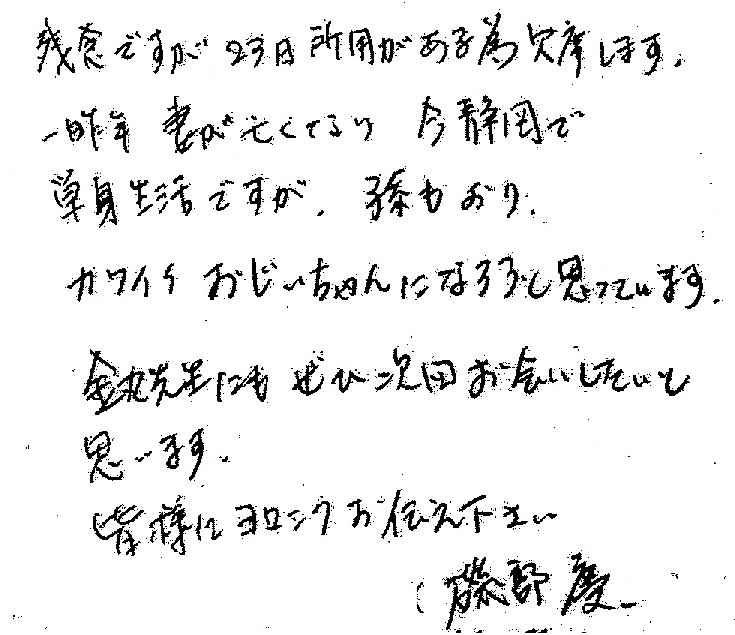 残念ですが23日所用がある為欠席します。
一昨年 妻が亡くなり 今静岡で
単身生活ですが、孫もおり、
カワイイ おじいちゃんになろうと思っています。
先生にも ぜひ次回お会いしたいと
思います。
皆様にヨロシクお伝え下さい
磯部 慶